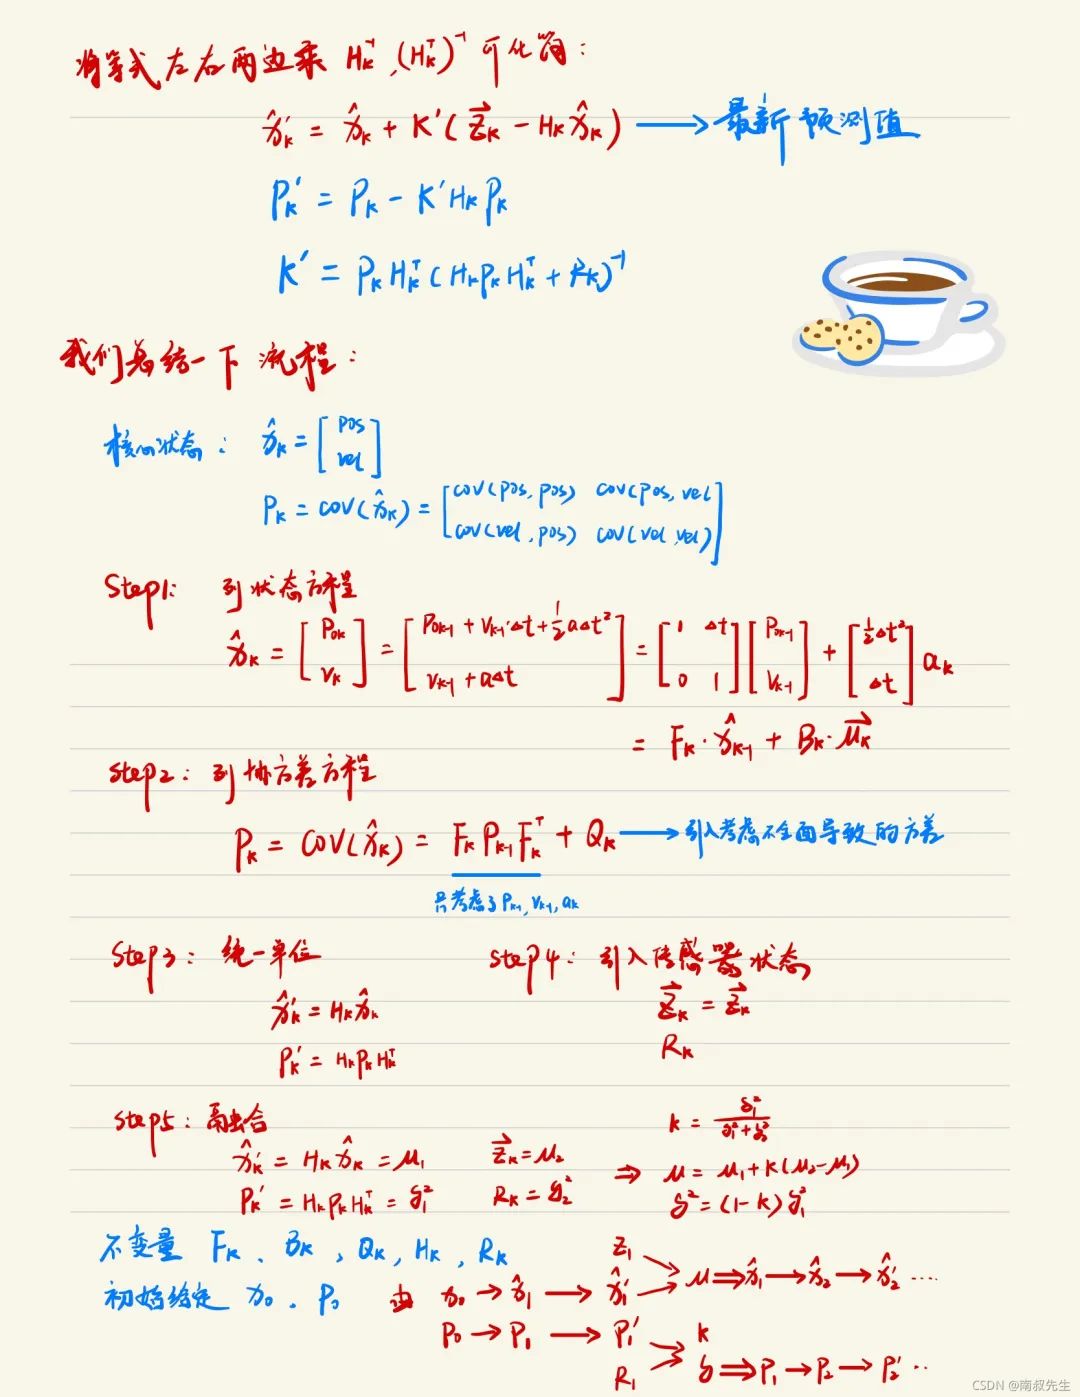 将等式左右两边乘 Hₖ⁻¹,(Hₖᵀ)⁻¹ 可化简:
x̂ₖ′ = x̂ₖ + K′(z⃗ₖ − Hₖx̂ₖ) → 最新预测值
Pₖ′ = Pₖ − K′HₖPₖ
K′ = PₖHₖᵀ(HₖPₖHₖᵀ + Rₖ)⁻¹
我们总结一下流程:
核心状态: x̂ₖ = [pos
vel]
Pₖ = cov(x̂ₖ) = [cov(pos, pos) cov(pos, vel)
cov(vel, pos) cov(vel, vel)]
Step1: 列状态方程
x̂ₖ = [P₀ₖ; vₖ] = [P₀ₖ₋₁ + vₖ₋₁·Δt + ½aΔt²; vₖ₋₁ + aΔt] = [1 Δt; 0 1][P₀ₖ₋₁; vₖ₋₁] + [½Δt²; Δt] aₖ
= Fₖ · x̂ₖ₋₁ + Bₖ · μ⃗ₖ
Step2: 列协方差方程
Pₖ = COV(x̂ₖ) = FₖPₖ₋₁Fₖᵀ + Qₖ → 引入考虑不全面导致的方差
只考虑了 Pₖ₋₁, vₖ₋₁, aₖ
Step3: 统一单位
x̂ₖ′ = Hₖx̂ₖ
Pₖ′ = HₖPₖHₖᵀ
Step4: 引入传感器状态
z⃗ₖ = z⃗ₖ
Rₖ
Step5: 融合
x̂ₖ′ = Hₖx̂ₖ = μ₁ z⃗ₖ = μ₂
Pₖ′ = HₖPₖHₖᵀ = δ₁² Rₖ = δ₂²
k = δ₁²/(δ₁²+δ₂²)
⇒ μ = μ₁ + k(μ₂ − μ₁)
δ² = (1 − k)δ₁²
不变量 Fₖ、Bₖ, Qₖ, Hₖ, Rₖ
初始给定 x₀、P₀ 由
z₁
x₀ → x̂₁ → x̂₁′ → μ ⇒ x̂₁ → x̂₂ → x̂₂′ ...
P₀ → P₁ → P₁′ → k
R₁ → δ ⇒ P₁ → P₂ → P₂′ ...
CSDN @南叔先生